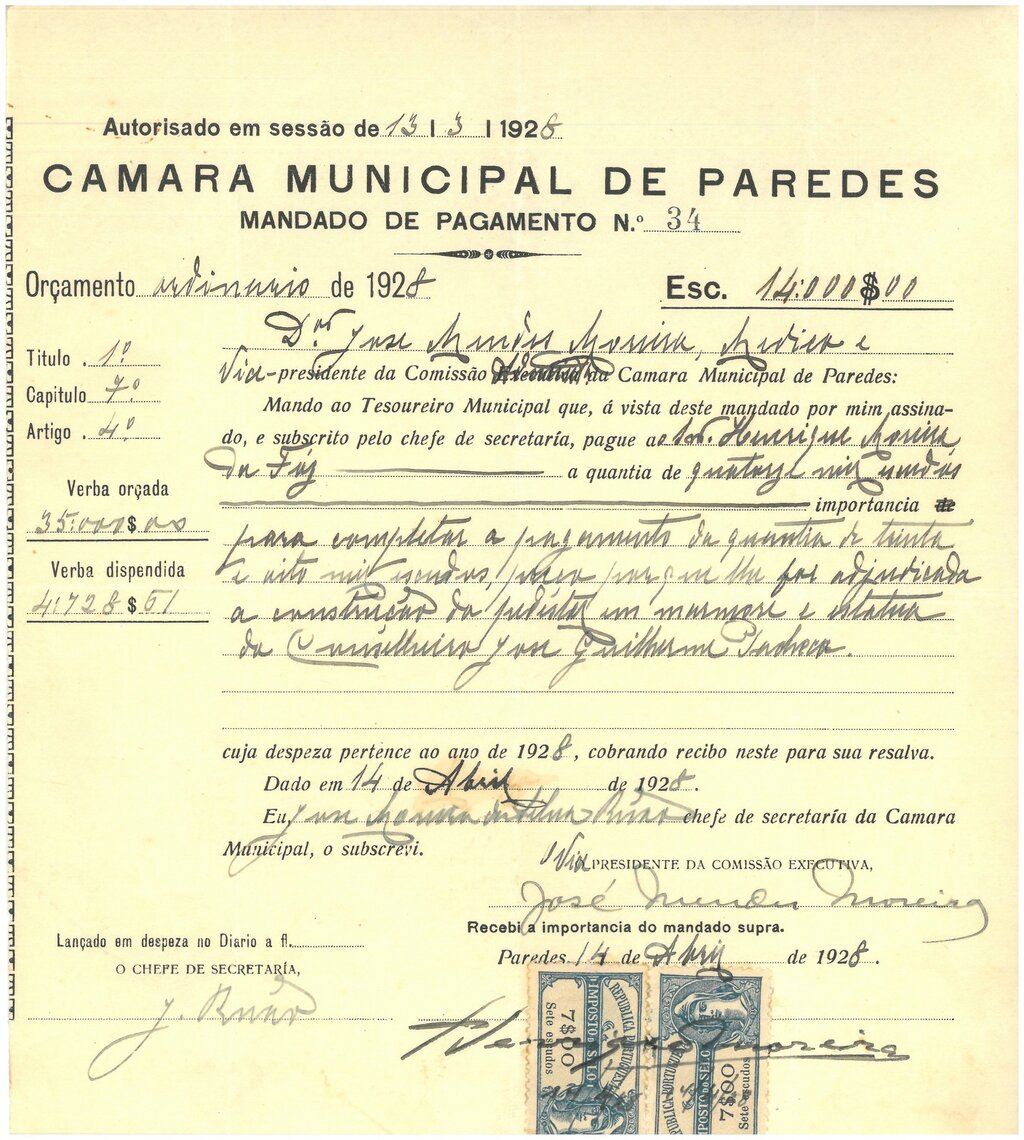 Autorisado em sessão de 13 | 3 | 1928
CAMARA MUNICIPAL DE PAREDES
MANDADO DE PAGAMENTO N.º 34
Orçamento ordinario de 1928
Esc. 14:000$00
Titulo 1º
Capitulo 7º
Artigo 4º
Verba orçada
35:000$00
Verba dispendida
4:728$51
Dor Jose Mendes Moreira, Medico e
Vice-presidente da Comissão Executiva da Camara Municipal de Paredes:
Mando ao Tesoureiro Municipal que, á vista deste mandado por mim assina-
do, e subscrito pelo chefe de secretaría, pague ao Henrique Moreira
da Foz a quantia de quatorze mil escudos
importancia de
para completar o pagamento da quantia de trinta
e oito mil escudos, preço porque lhe foi adjudicada
a construção do pedestal em marmore e estatua
do Conselheiro Jose Guilherme Pacheco.
cuja despeza pertence ao ano de 1928, cobrando recibo neste para sua resalva.
Dado em 14 de Abril de 1928.
Eu, Jose Moreira da Silva Ruão chefe de secretaría da Camara
Municipal, o subscrevi.
O Vice PRESIDENTE DA COMISSÃO EXECUTIVA,
José Mendes Moreira
Recebi a importancia do mandado supra.
Paredes 14 de Abril de 1928.
Lançado em despeza no Diario a fl.
O CHEFE DE SECRETARÍA,
J. Ruão
Henrique Moreira
REPUBLICA PORTUGUESA
IMPOSTO DO SELO
7$00
Sete escudos
REPUBLICA PORTUGUESA
IMPOSTO DO SELO
7$00
Sete escudos